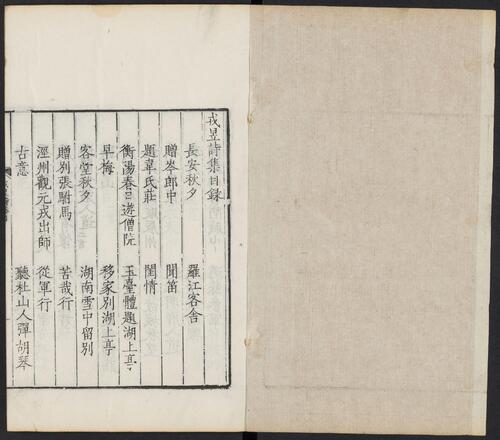 戎昱詩集目錄
長安秋夕 羅江客舍
贈岑郎中 聞笛
題韋氏莊 閨情
衡陽春日遊僧院 玉臺體題湖上亭
早梅 移家別湖上亭
客堂秋夕 湖南雪中留別
贈別張駙馬 苦哉行
涇州觀元戎出師 從軍行
古意 聽杜山人彈胡琴